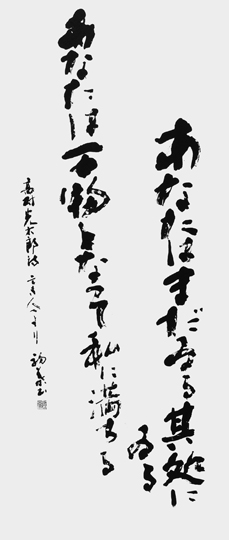 あなたはまだゐる其処に
ゐる
あなたは万物となつて私に満ちる
高村光太郎詩